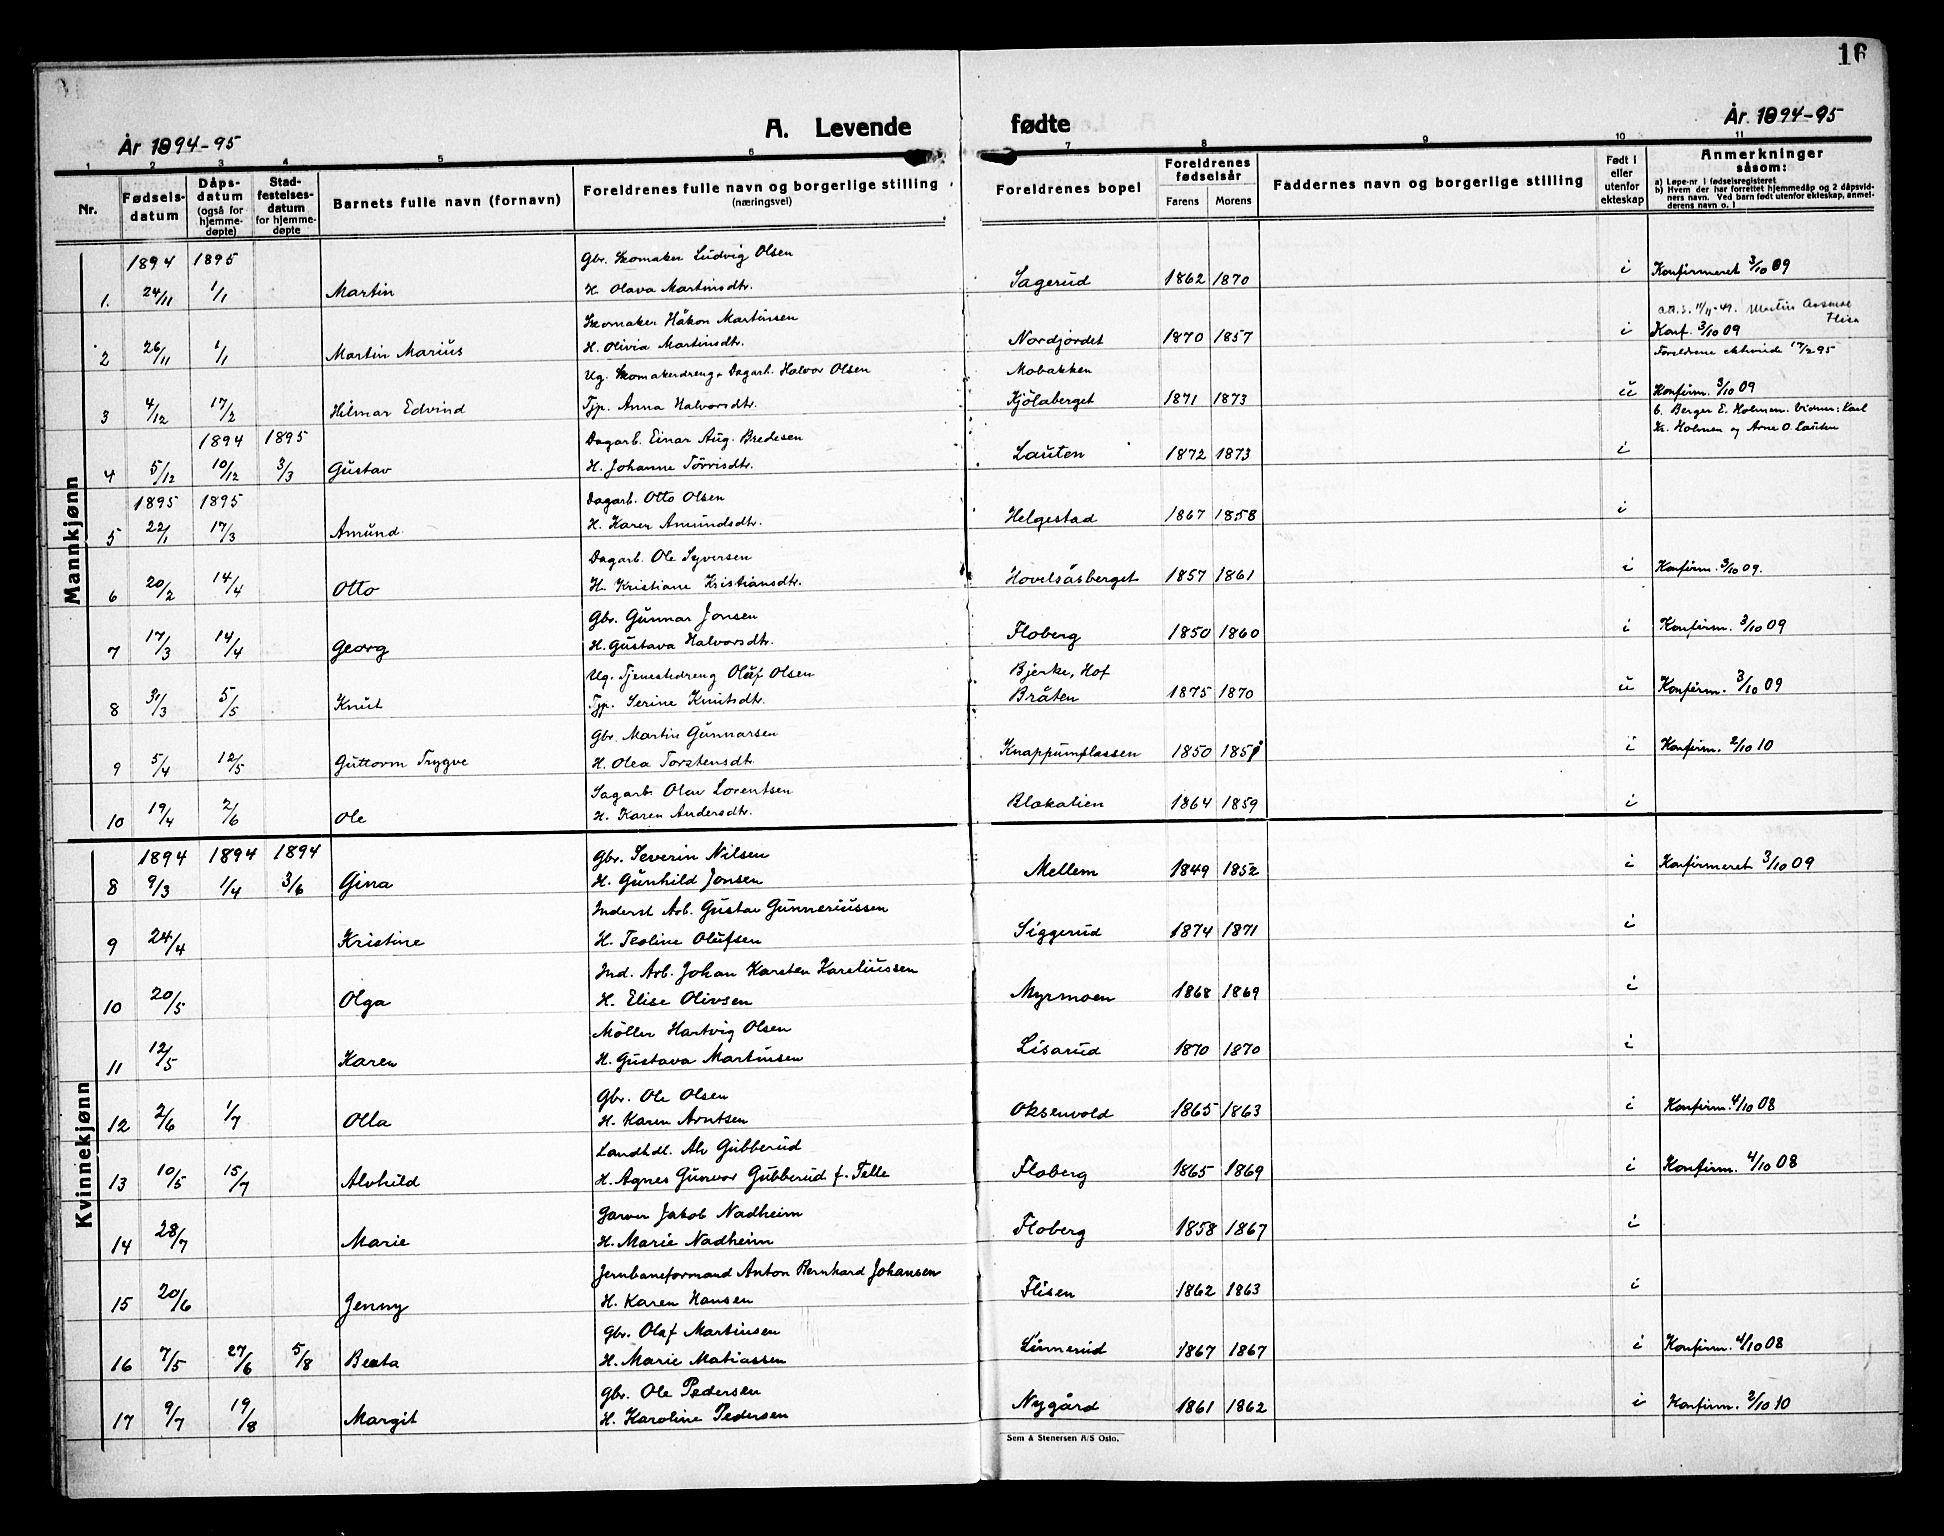 16
År 1894-95
A. Levende fødte
År 1894-95
1 2 3 4 5 6 7 8 9 10 11
Nr. Fødselsdatum Dåpsdatum (også for hjemmedøpte) Stadfestelsesdatum for hjemmedøpte Barnets fulle navn (fornavn) Foreldrenes fulle navn og borgerlige stilling (næringsvei) Foreldrenes bopel Foreldrenes fødselsår Farens Morens Faddernes navn og borgerlige stilling Født i eller utenfor ekteskap Anmerkninger såsom:
a) Løpe-nr i fødselsregisteret
b) Hvem der har forrettet hjemmedåp og 2 dåpsvidners navn. Ved barn født utenfor ekteskap, anmelderens navn o. l
Mannkjønn
1894 1895 Gbr. Skomaker Ludvig Olsen
1. 24/11 1/1 Martin H. Olava Martinsdtr. Sagerud 1862 1870 i Konfirmeret 3/10 09
Skomaker Håkon Martinsen att.s. 11/11-49. Martin Flisa
2 26/11 1/1 Martin Marius H. Olivia Martinsdtr. Nordjordet 1870 1857 i Konf. 3/10 09
Ug. Skomakerdreng + Dagarb. Halvor Olsen Mobakken Foreldrene ektevide 17/2 95
3 4/12 17/2 Hilmar Edvind Tjp. Anna Halvorsdtr. Kjölaberget 1871 1873 u Konfirm. 3/10 09
1894 1895 Dagarb. Einar Aug. Bredesen b. Berger E. Holmen. Vidner: Karl
4 5/12 10/12 3/3 Gustav H. Johanne Törrisdtr. Lauten 1872 1873 i Kr. Holmen og Arne O. Lauten
1895 1895 Dagarb. Otto Olsen
5 22/1 17/3 Amund H. Karen Amundsdtr. Helgestad 1867 1858 i
Dagarb. Ole Syversen
6 20/2 14/4 Otto H. Kristiane Kristiansdtr. Hovelsåsberget 1857 1861 i Konfirm. 3/10 09.
Gbr. Gunnar Jonsen
7 17/3 14/4 Georg H. Gustava Halvorsdtr. Floberg 1850 1860 i Konfirm. 3/10 09
Ug. Tjenestedreng Oluf Olsen Bjerke, Hof
8 31/3 5/5 Knut Tjp. Serine Knutsdtr. Bråten 1875 1870 u Konfirm. 3/10 09
Gbr. Martin Gunnarsen
9 5/4 12/5 Guttorm Trygve H. Olea Torstensdtr. Knappumplassen 1850 1851 i Konfirm. 2/10 10
Sagarb. Olav Lorentsen
10 19/4 2/6 Ole H. Karen Andersdtr. Blokalien 1864 1859 i
Kvinnekjønn
1894 1894 1894 Gbr. Severin Nilsen
8 9/3 1/4 3/6 Gina H. Gunhild Jonsen Mellem 1849 1852 i Konfirmeret 3/10 09
Inderst Arb. Gustav Gunneriussen
9 24/4 Kristine H. Teoline Olufsen Siggerud 1874 1871 i
Ind. Arb. Johan Karsten Kareliussen
10 20/5 Olga H. Elise Olivsen Myrmoen 1868 1869 i
Möller Hartvig Olsen
11 12/5 Karen H. Gustava Martinsen Lisarud 1870 1870 i
Gbr. Ole Olsen
12 2/6 1/7 Olla H. Karen Arntsen Oksenvold 1865 1863 i Konfirm. 4/10 08
Landhdl. Alv Gubberud
13 10/5 15/7 Alvhild H. Agnes Gunvor Gubberud f. Telle Floberg 1865 1869 i Konfirm. 4/10 08
Garver Jakob Nadheim
14 28/7 Marie H. Marie Nadheim Floberg 1858 1867 i
Jernbaneformand Anton Bernhard Johansen
15 20/6 Jenny H. Karen Hansen Flisen 1862 1863 i
Gbr. Olaf Martinsen
16 7/5 27/6 5/8 Beata H. Marie Matiassen Linnerud 1867 1867 i Konfirm. 4/10 08
Gbr. Ole Pedersen
17 9/7 19/8 Margit H. Karoline Pedersen Nygård 1861 1862 i Konfirm. 2/10 10
Sem & Stenersen A/S Oslo.